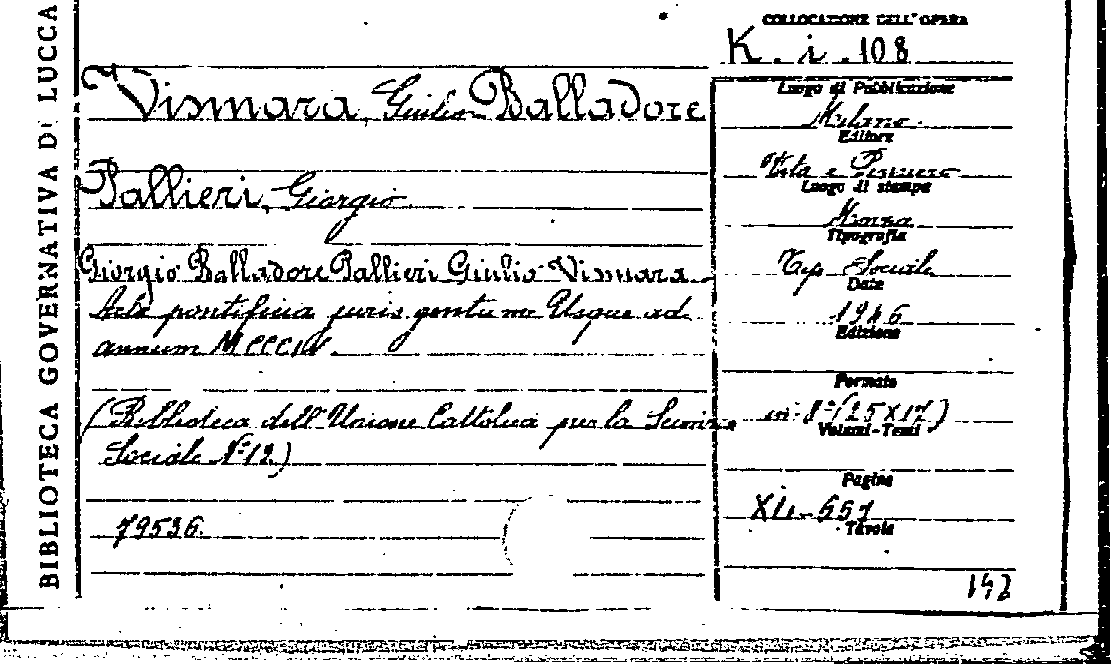 BIBLIOTECA GOVERNATIVA DI LUCCA
COLLOCAZIONE DELL'OPERA
K. i. 108
Vismara, Giulio Balladore
Pallieri, Giorgio
Giorgio Balladore Pallieri Giulio Vismara
Acta pontificia juris gentium Usque ad
annum MCCCIV
(Biblioteca dell'Unione Cattolica per le Scienze
Sociali N° 12.)
79536.
Luogo di Pubblicazione
Milano
Editore
Vita e Pensiero
Luogo di stampa
Monza
Tipografia
Tip. Sociale
Date
1946
Edizione
Formato
in 8° (25X17)
Volumi-Tomi
Pagine
XL-651
Tavole